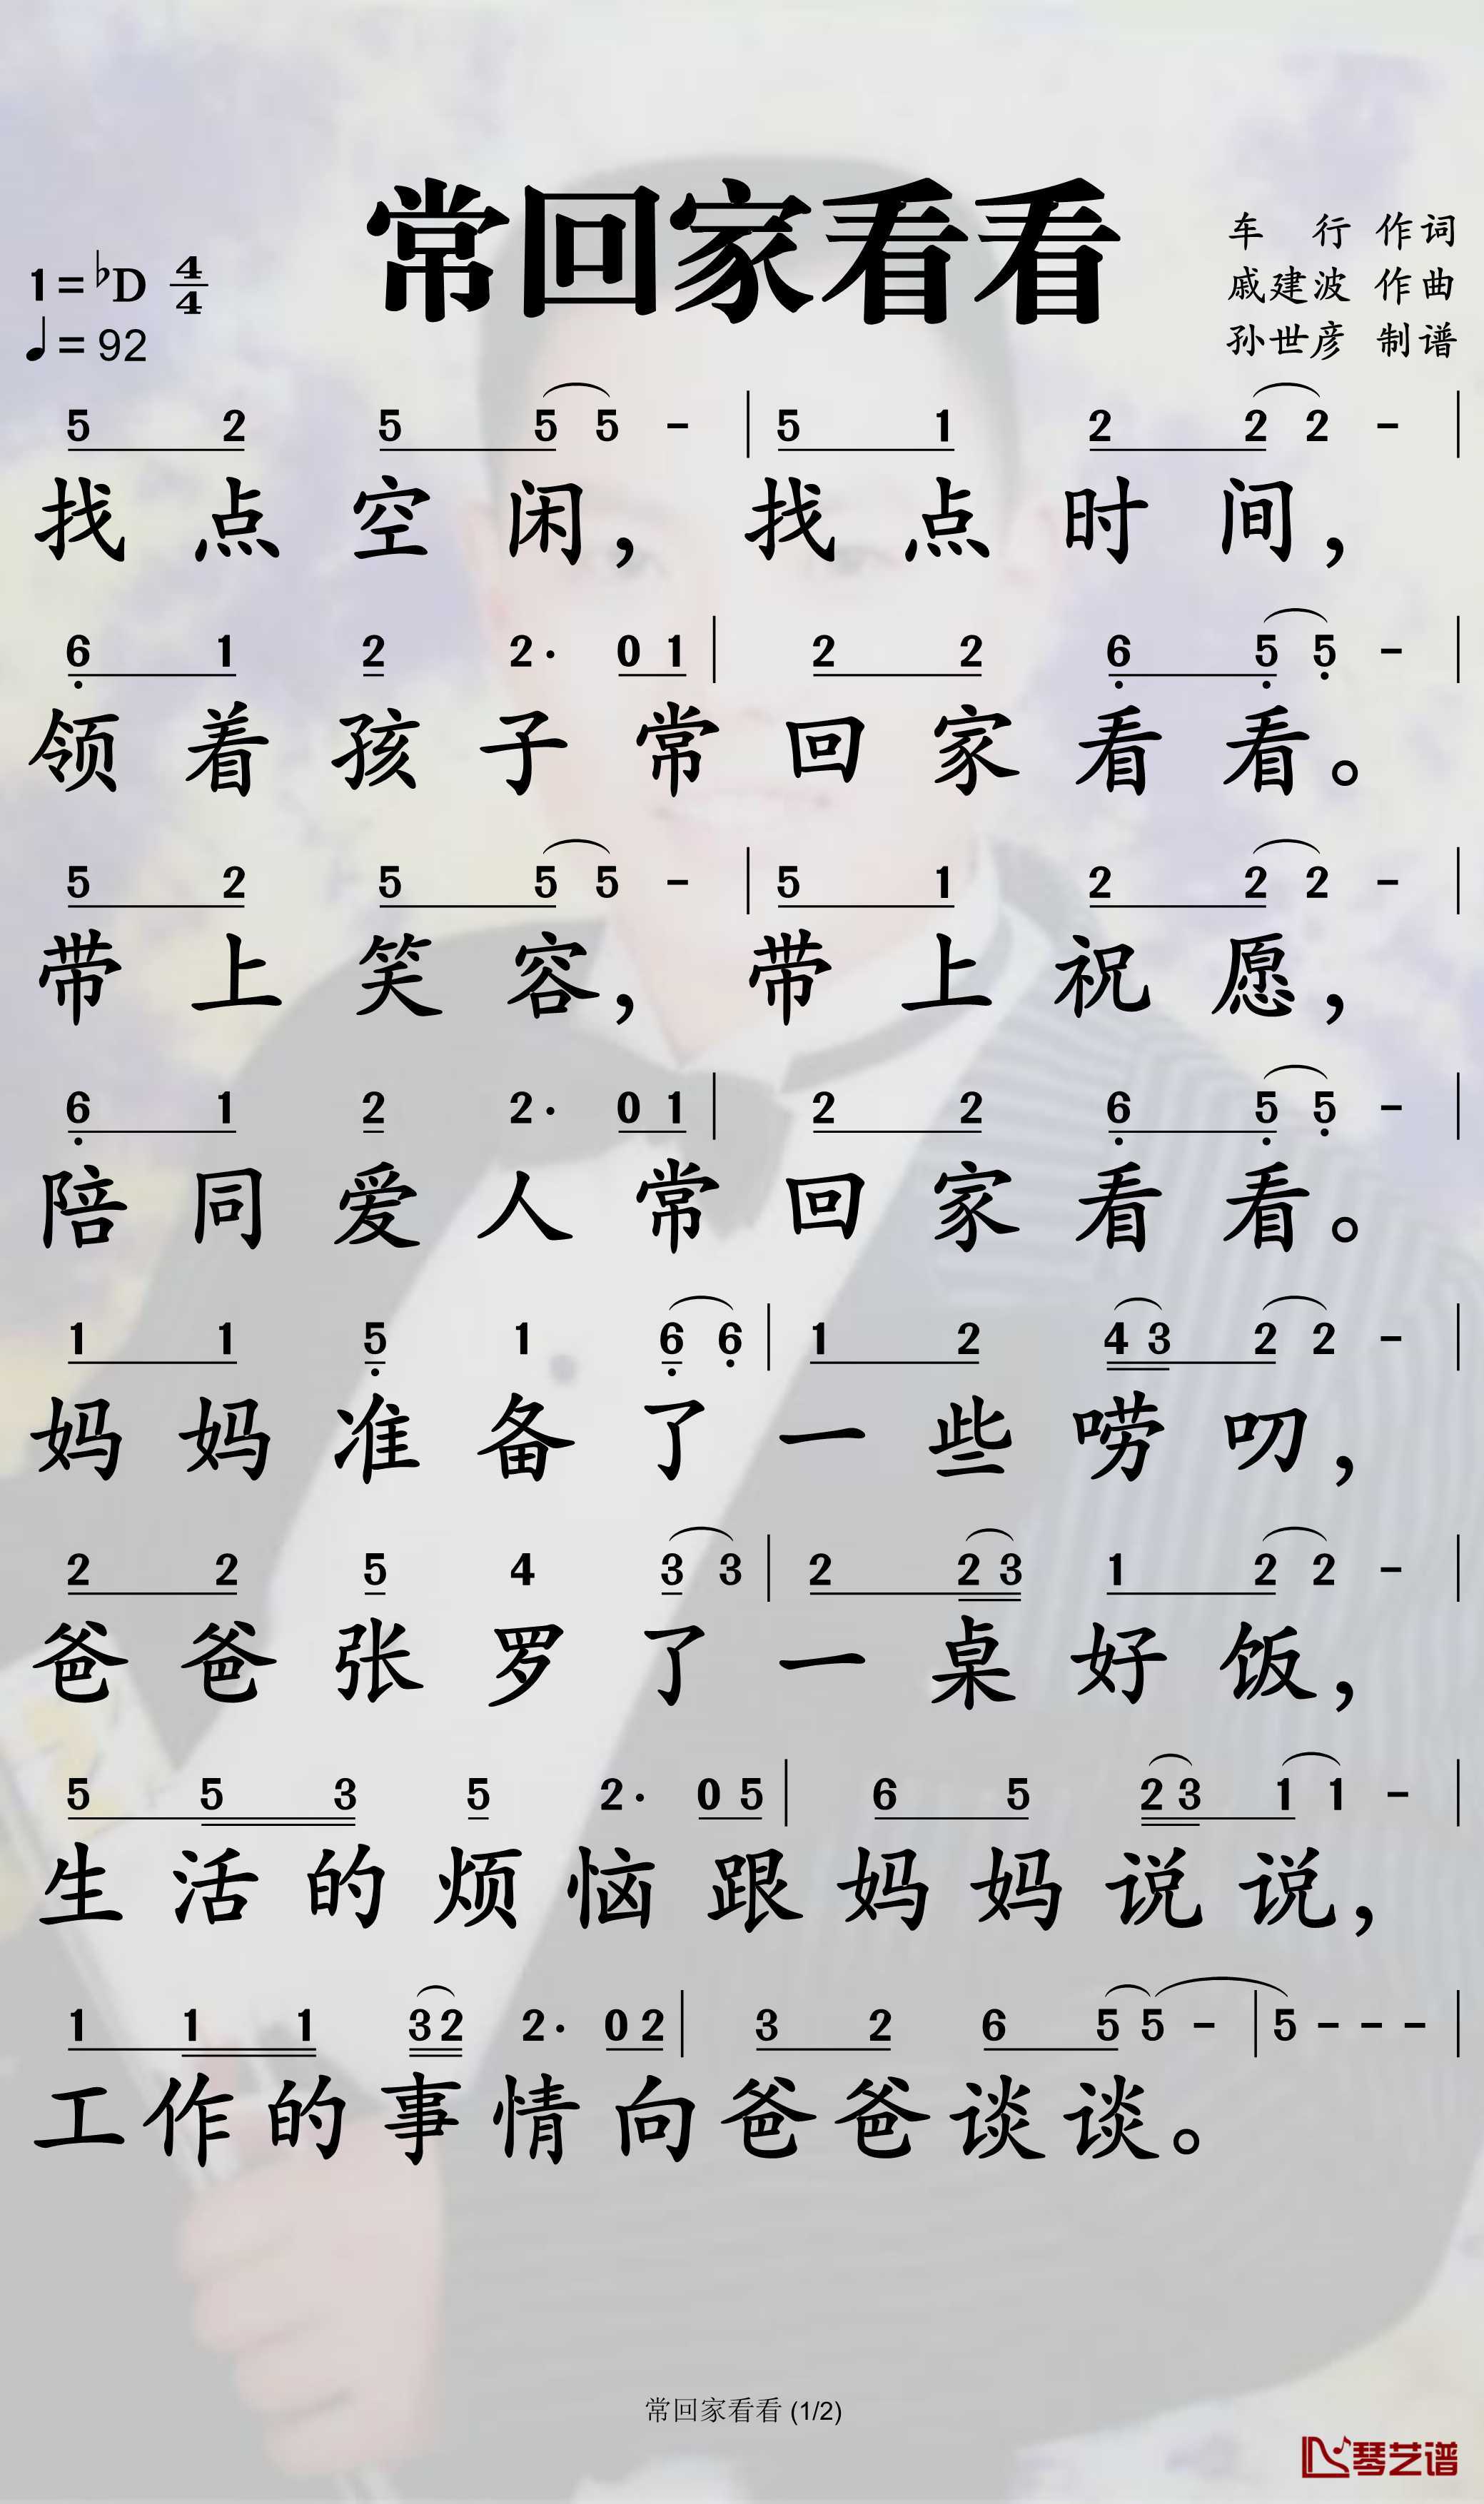 常回家看看
车 行 作词
1=♭D 4/4
戚建波 作曲
♩=92
孙世彦 制谱
5 2 5 5 5 - | 5 1 2 2 2 - |
找点空闲，找点时间，
6 1 2 2· 0 1 | 2 2 6 5 5 - |
领着孩子常回家看看。
5 2 5 5 5 - | 5 1 2 2 2 - |
带上笑容，带上祝愿，
6 1 2 2· 0 1 | 2 2 6 5 5 - |
陪同爱人常回家看看。
1 1 5 1 6 6 | 1 2 4 3 2 2 - |
妈妈准备了一些唠叨，
2 2 5 4 3 3 | 2 2 3 1 2 2 - |
爸爸张罗了一桌好饭，
5 5 3 5 2· 0 5 | 6 5 2 3 1 1 - |
生活的烦恼跟妈妈说说，
1 1 1 3 2 2· 0 2 | 3 2 6 5 5 - | 5 - - - |
工作的事情向爸爸谈谈。
常回家看看 (1/2)
琴艺谱